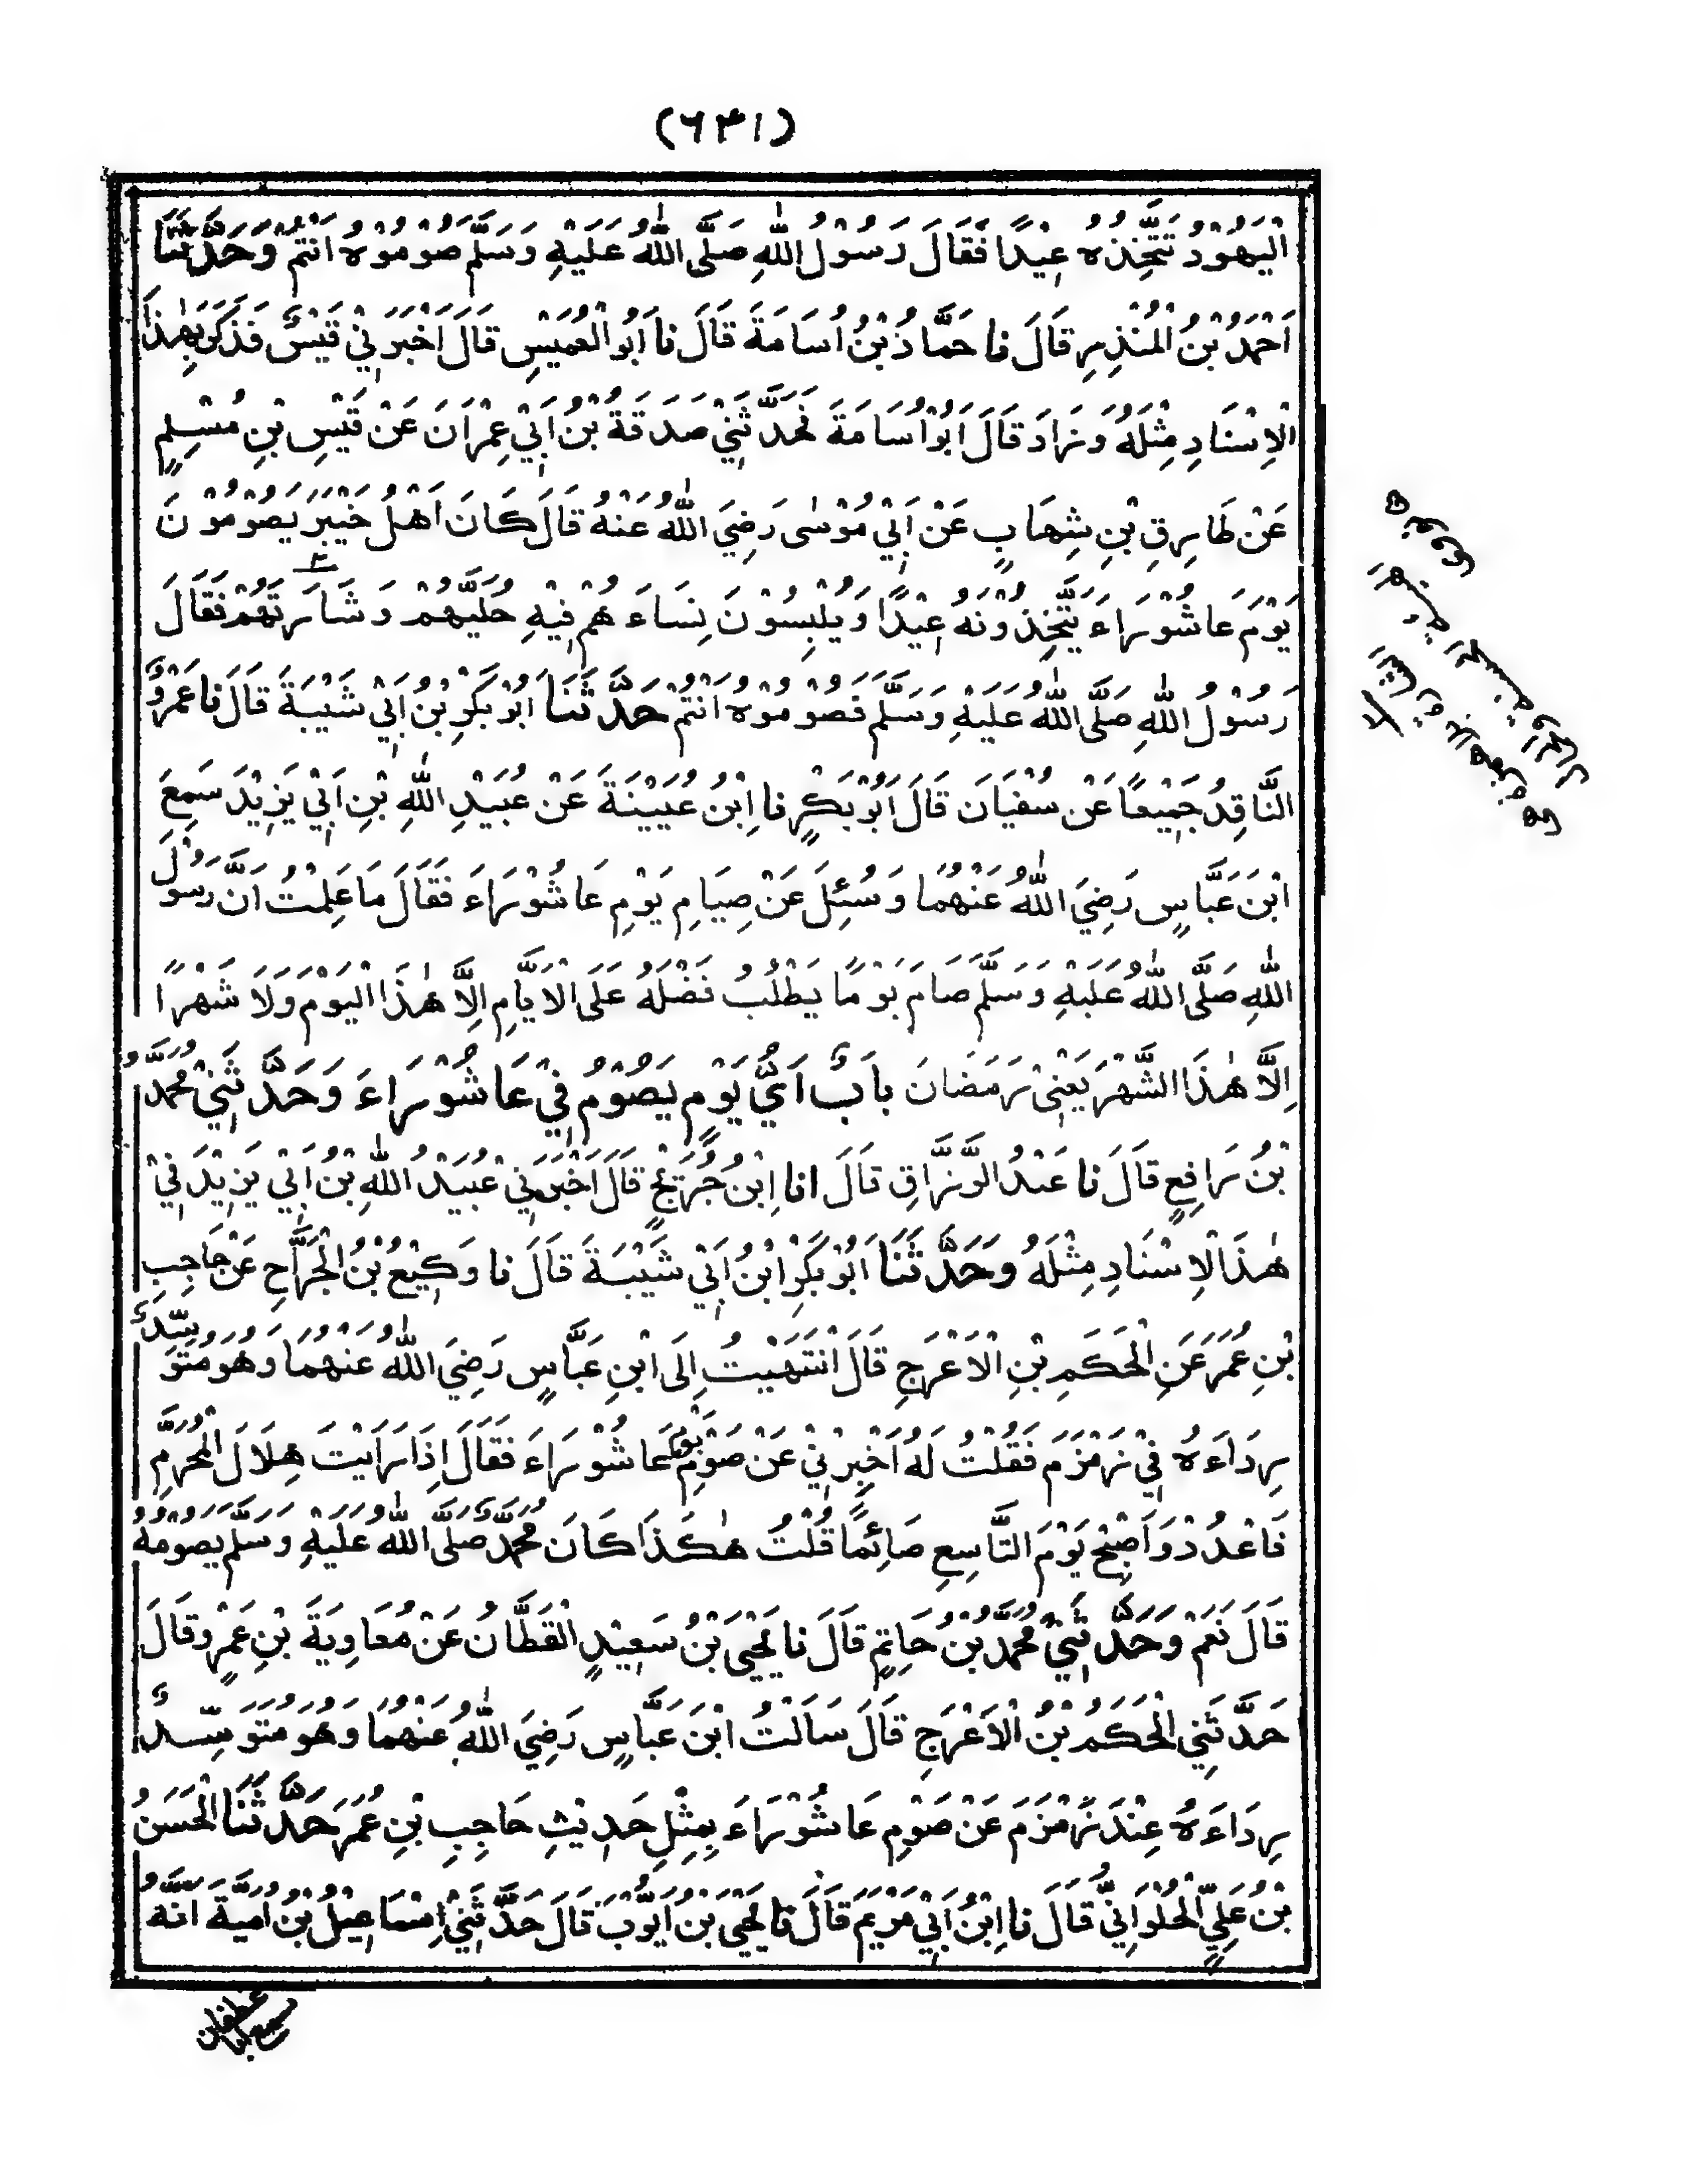 (٦٣١)
اَلْيَهُوْدُ تَتَّخِذُهُ عِيْدًا فَقَالَ رَسُوْلُ اللّٰهِ صَلَّى اللّٰهُ عَلَيْهِ وَسَلَّمَ صُوْمُوْهُ اَنْتُمْ وَحَدَّثَنَا
اَحْمَدُ بْنُ الْمُنْذِرِ قَالَ نا حَمَّادُ بْنُ اُسَامَةَ قَالَ نا اَبُو الْعُمَيْسِ قَالَ اَخْبَرَنِيْ قَيْسٌ فَذَكَرَ بِهٰذَا
الْاِسْنَادِ مِثْلَهُ وَزَادَ قَالَ اَبُوْ اُسَامَةَ فَحَدَّثَنِيْ صَدَقَةُ بْنُ اَبِيْ عِمْرَانَ عَنْ قَيْسِ بْنِ مُسْلِمٍ
عَنْ طَارِقِ بْنِ شِهَابٍ عَنْ اَبِيْ مُوْسٰى رَضِيَ اللّٰهُ عَنْهُ قَالَ كَانَ اَهْلُ خَيْبَرَ يَصُوْمُوْنَ
يَوْمَ عَاشُوْرَاءَ يَتَّخِذُوْنَهُ عِيْدًا وَيُلْبِسُوْنَ نِسَاءَهُمْ فِيْهِ حُلِيَّهُمْ وَشَارَتَهُمْ فَقَالَ
رَسُوْلُ اللّٰهِ صَلَّى اللّٰهُ عَلَيْهِ وَسَلَّمَ فَصُوْمُوْهُ اَنْتُمْ حَدَّثَنَا اَبُوْ بَكْرِ بْنُ اَبِيْ شَيْبَةَ قَالَ نا عَمْرٌو
النَّاقِدُ جَمِيْعًا عَنْ سُفْيَانَ قَالَ اَبُوْ بَكْرٍ نا اِبْنُ عُيَيْنَةَ عَنْ عُبَيْدِ اللّٰهِ بْنِ اَبِيْ يَزِيْدَ سَمِعَ
ابْنَ عَبَّاسٍ رَضِيَ اللّٰهُ عَنْهُمَا وَسُئِلَ عَنْ صِيَامِ يَوْمِ عَاشُوْرَاءَ فَقَالَ مَا عَلِمْتُ اَنَّ رَسُوْلَ
اللّٰهِ صَلَّى اللّٰهُ عَلَيْهِ وَسَلَّمَ صَامَ يَوْمًا يَطْلُبُ فَضْلَهُ عَلَى الْاَيَّامِ اِلَّا هٰذَا الْيَوْمَ وَلَا شَهْرًا
اِلَّا هٰذَا الشَّهْرَ يَعْنِيْ رَمَضَانَ بَابٌ اَيُّ يَوْمٍ يَصُوْمُ فِيْ عَاشُوْرَاءَ وَحَدَّثَنِيْ مُحَمَّدُ
بْنُ رَافِعٍ قَالَ نا عَبْدُ الرَّزَّاقِ قَالَ انا اِبْنُ جُرَيْجٍ قَالَ اَخْبَرَنِيْ عُبَيْدُ اللّٰهِ بْنُ اَبِيْ يَزِيْدَ فِيْ
هٰذَا الْاِسْنَادِ مِثْلَهُ وَحَدَّثَنَا اَبُوْ بَكْرِ ابْنُ اَبِيْ شَيْبَةَ قَالَ نا وَكِيْعُ بْنُ الْجَرَّاحِ عَنْ حَاجِبِ
بْنِ عُمَرَ عَنِ الْحَكَمِ بْنِ الْاَعْرَجِ قَالَ انْتَهَيْتُ اِلَى ابْنِ عَبَّاسٍ رَضِيَ اللّٰهُ عَنْهُمَا وَهُوَ مُتَوَسِّدٌ
رِدَاءَهُ فِيْ زَمْزَمَ فَقُلْتُ لَهُ اَخْبِرْنِيْ عَنْ صَوْمِ يَوْمِ عَاشُوْرَاءَ فَقَالَ اِذَا رَاَيْتَ هِلَالَ الْمُحَرَّمِ
فَاعْدُدْ وَاَصْبِحْ يَوْمَ التَّاسِعِ صَائِمًا قُلْتُ هٰكَذَا كَانَ مُحَمَّدٌ صَلَّى اللّٰهُ عَلَيْهِ وَسَلَّمَ يَصُوْمُهُ
قَالَ نَعَمْ وَحَدَّثَنِيْ مُحَمَّدُ بْنُ حَاتِمٍ قَالَ نا يَحْيَى بْنُ سَعِيْدٍ الْقَطَّانُ عَنْ مُعَاوِيَةَ بْنِ عَمْرٍو قَالَ
حَدَّثَنِي الْحَكَمُ بْنُ الْاَعْرَجِ قَالَ سَاَلْتُ ابْنَ عَبَّاسٍ رَضِيَ اللّٰهُ عَنْهُمَا وَهُوَ مُتَوَسِّدٌ
رِدَاءَهُ عِنْدَ زَمْزَمَ عَنْ صَوْمِ عَاشُوْرَاءَ بِمِثْلِ حَدِيْثِ حَاجِبِ بْنِ عُمَرَ حَدَّثَنَا الْحَسَنُ
بْنُ عَلِيٍّ الْحُلْوَانِيُّ قَالَ نا اِبْنُ اَبِيْ مَرْيَمَ قَالَ نا يَحْيَى بْنُ اَيُّوْبَ قَالَ حَدَّثَنِيْ اِسْمَاعِيْلُ بْنُ اُمَيَّةَ اَنَّهُ